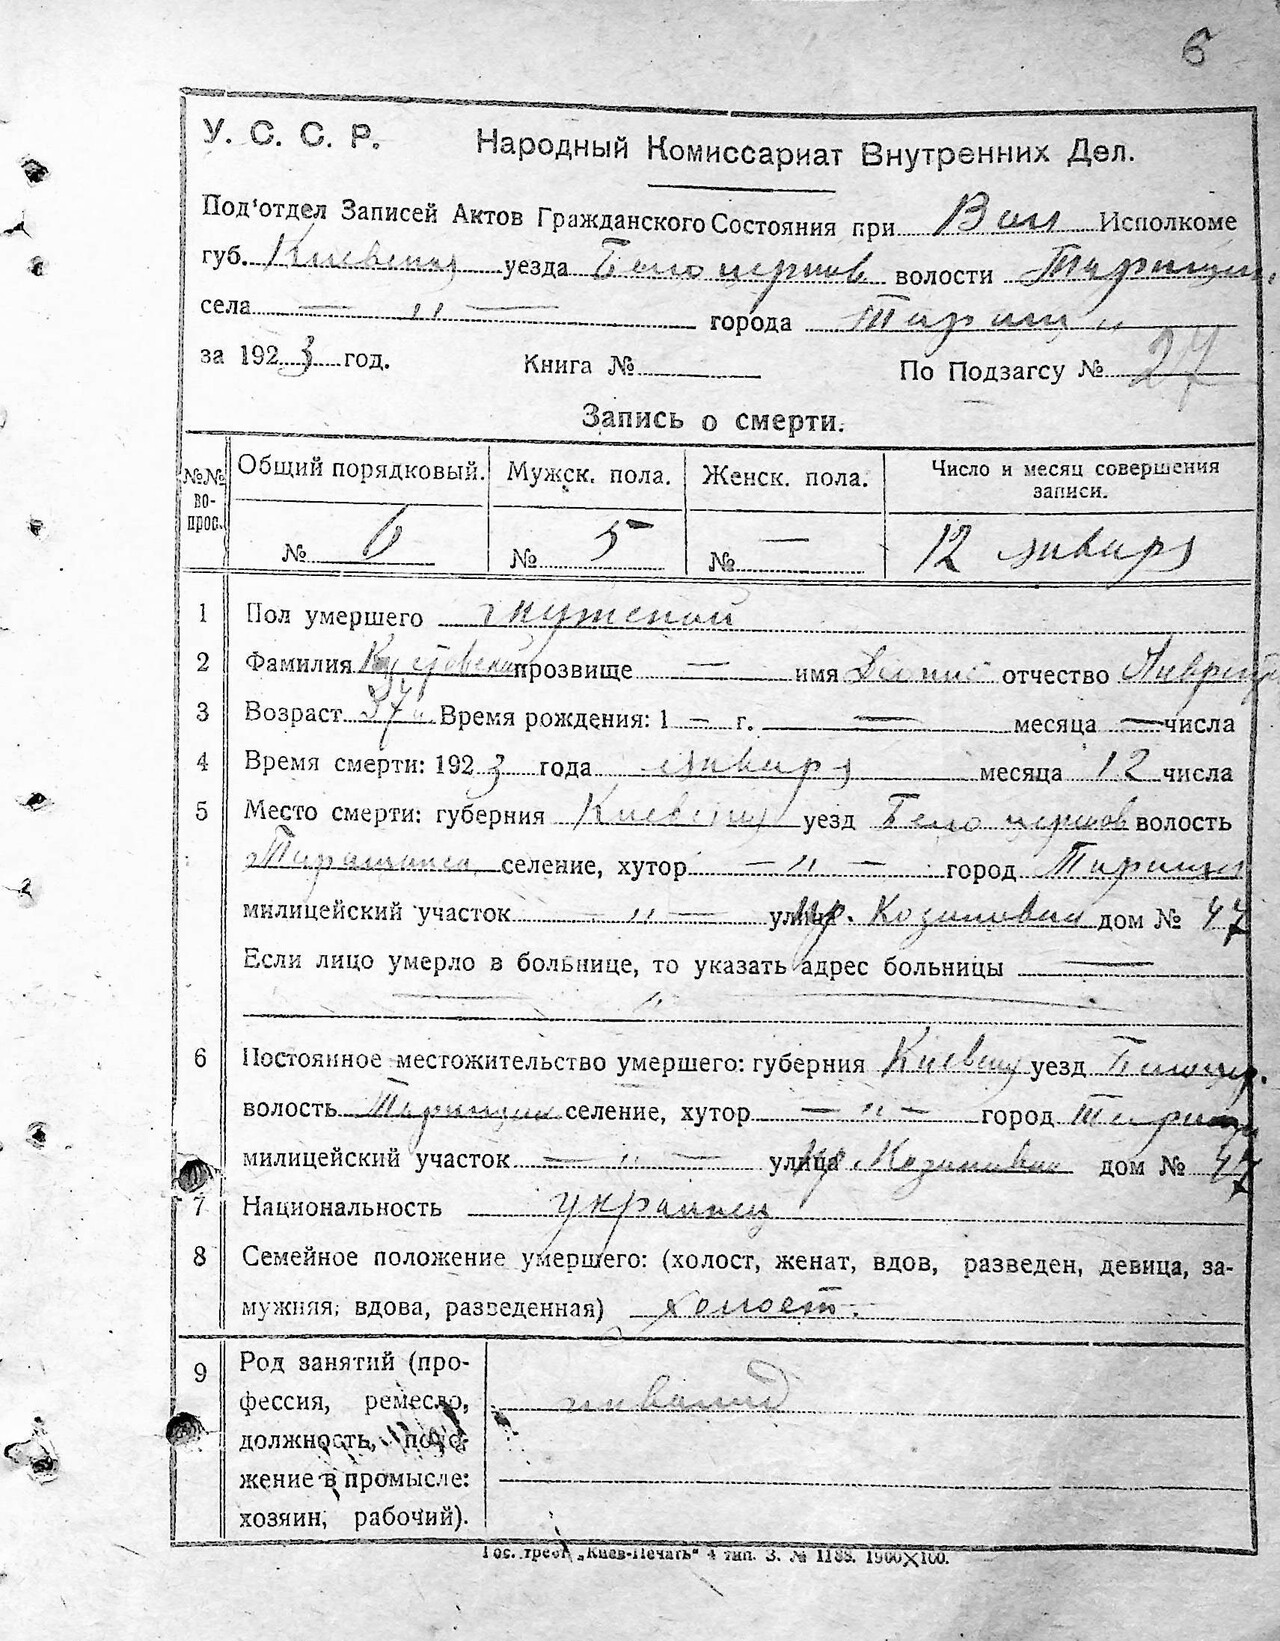 6
У. С. С. Р. Народный Комиссариат Внутренних Дел.
Под'отдел Записей Актов Гражданского Состояния при Вол Исполкоме
губ. Киевская уезда Белоцерков волости Таращан.
села — " — города Таращ
за 1923 год. Книга № По Подзагсу № 27
Запись о смерти.
№№ вопрос. Общий порядковый. Мужск. пола. Женск. пола. Число и месяц совершения записи.
№ 6 № 5 № — 12 января
1 Пол умершего мужской
2 Фамилия прозвище — имя Дионис отчество
3 Возраст 37 Время рождения: 1 — г. — месяца — числа
4 Время смерти: 1923 года января месяца 12 числа
5 Место смерти: губерния Киевская уезд Белоцерков волость
Таращанская селение, хутор — " — город Тараща
милицейский участок — " — улица дом № 47
Если лицо умерло в больнице, то указать адрес больницы —
— " —
6 Постоянное местожительство умершего: губерния Киевская уезд Белоцер.
волость Таращан селение, хутор — " — город Тараща
милицейский участок — " — улица дом № 47
7 Национальность украинец
8 Семейное положение умершего: (холост, женат, вдов, разведен, девица, за-
мужняя, вдова, разведенная) холост.
9 Род занятий (про-
фессия, ремесло, инвалид
должность, поло-
жение в промысле:
хозяин, рабочий).
Гос. трест „Киев-Печать" 4 тип. З. № 1188. 1900×100.